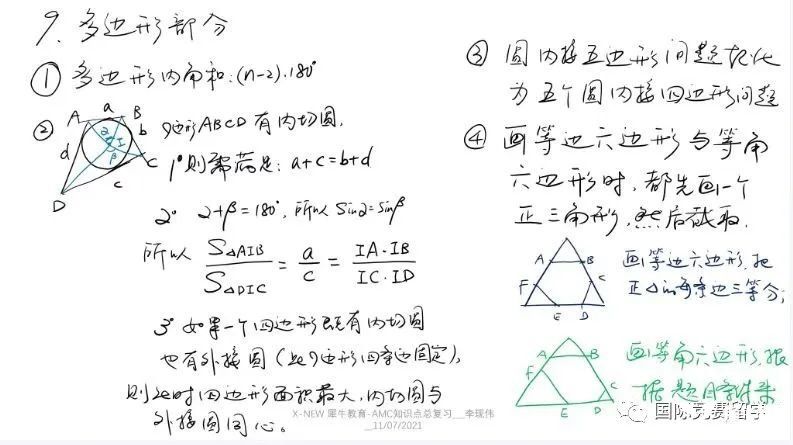 9. 多边形部分
① 多边形内角和：(n-2)·180°
② 四边形ABCD有内切圆.
A a B
α I b
d β C
c
D
1° 则需满足：a+c=b+d
2° α+β=180°, 所以 sinα=sinβ
所以 S△AIB / S△DIC = a / c = IA·IB / IC·ID
3° 如果一个四边形既有内切圆
也有外接圆（此四边形四条边固定），
则此时四边形面积最大，内切圆与
外接圆同心。
③ 圆内接五边形问题转化
为五个圆内接四边形问题
④ 画等边六边形与等角
六边形时，都先画一个
正三角形，然后截取.
A B
F C
E D
画等边六边形，把
正△的每条边三等分；
A B
F
C
E D
画等角六边形，根
据题目条件来
X-NEW 犀牛教育-AMC知识点总复习__李现伟
__11/07/2021
国际竞赛留学